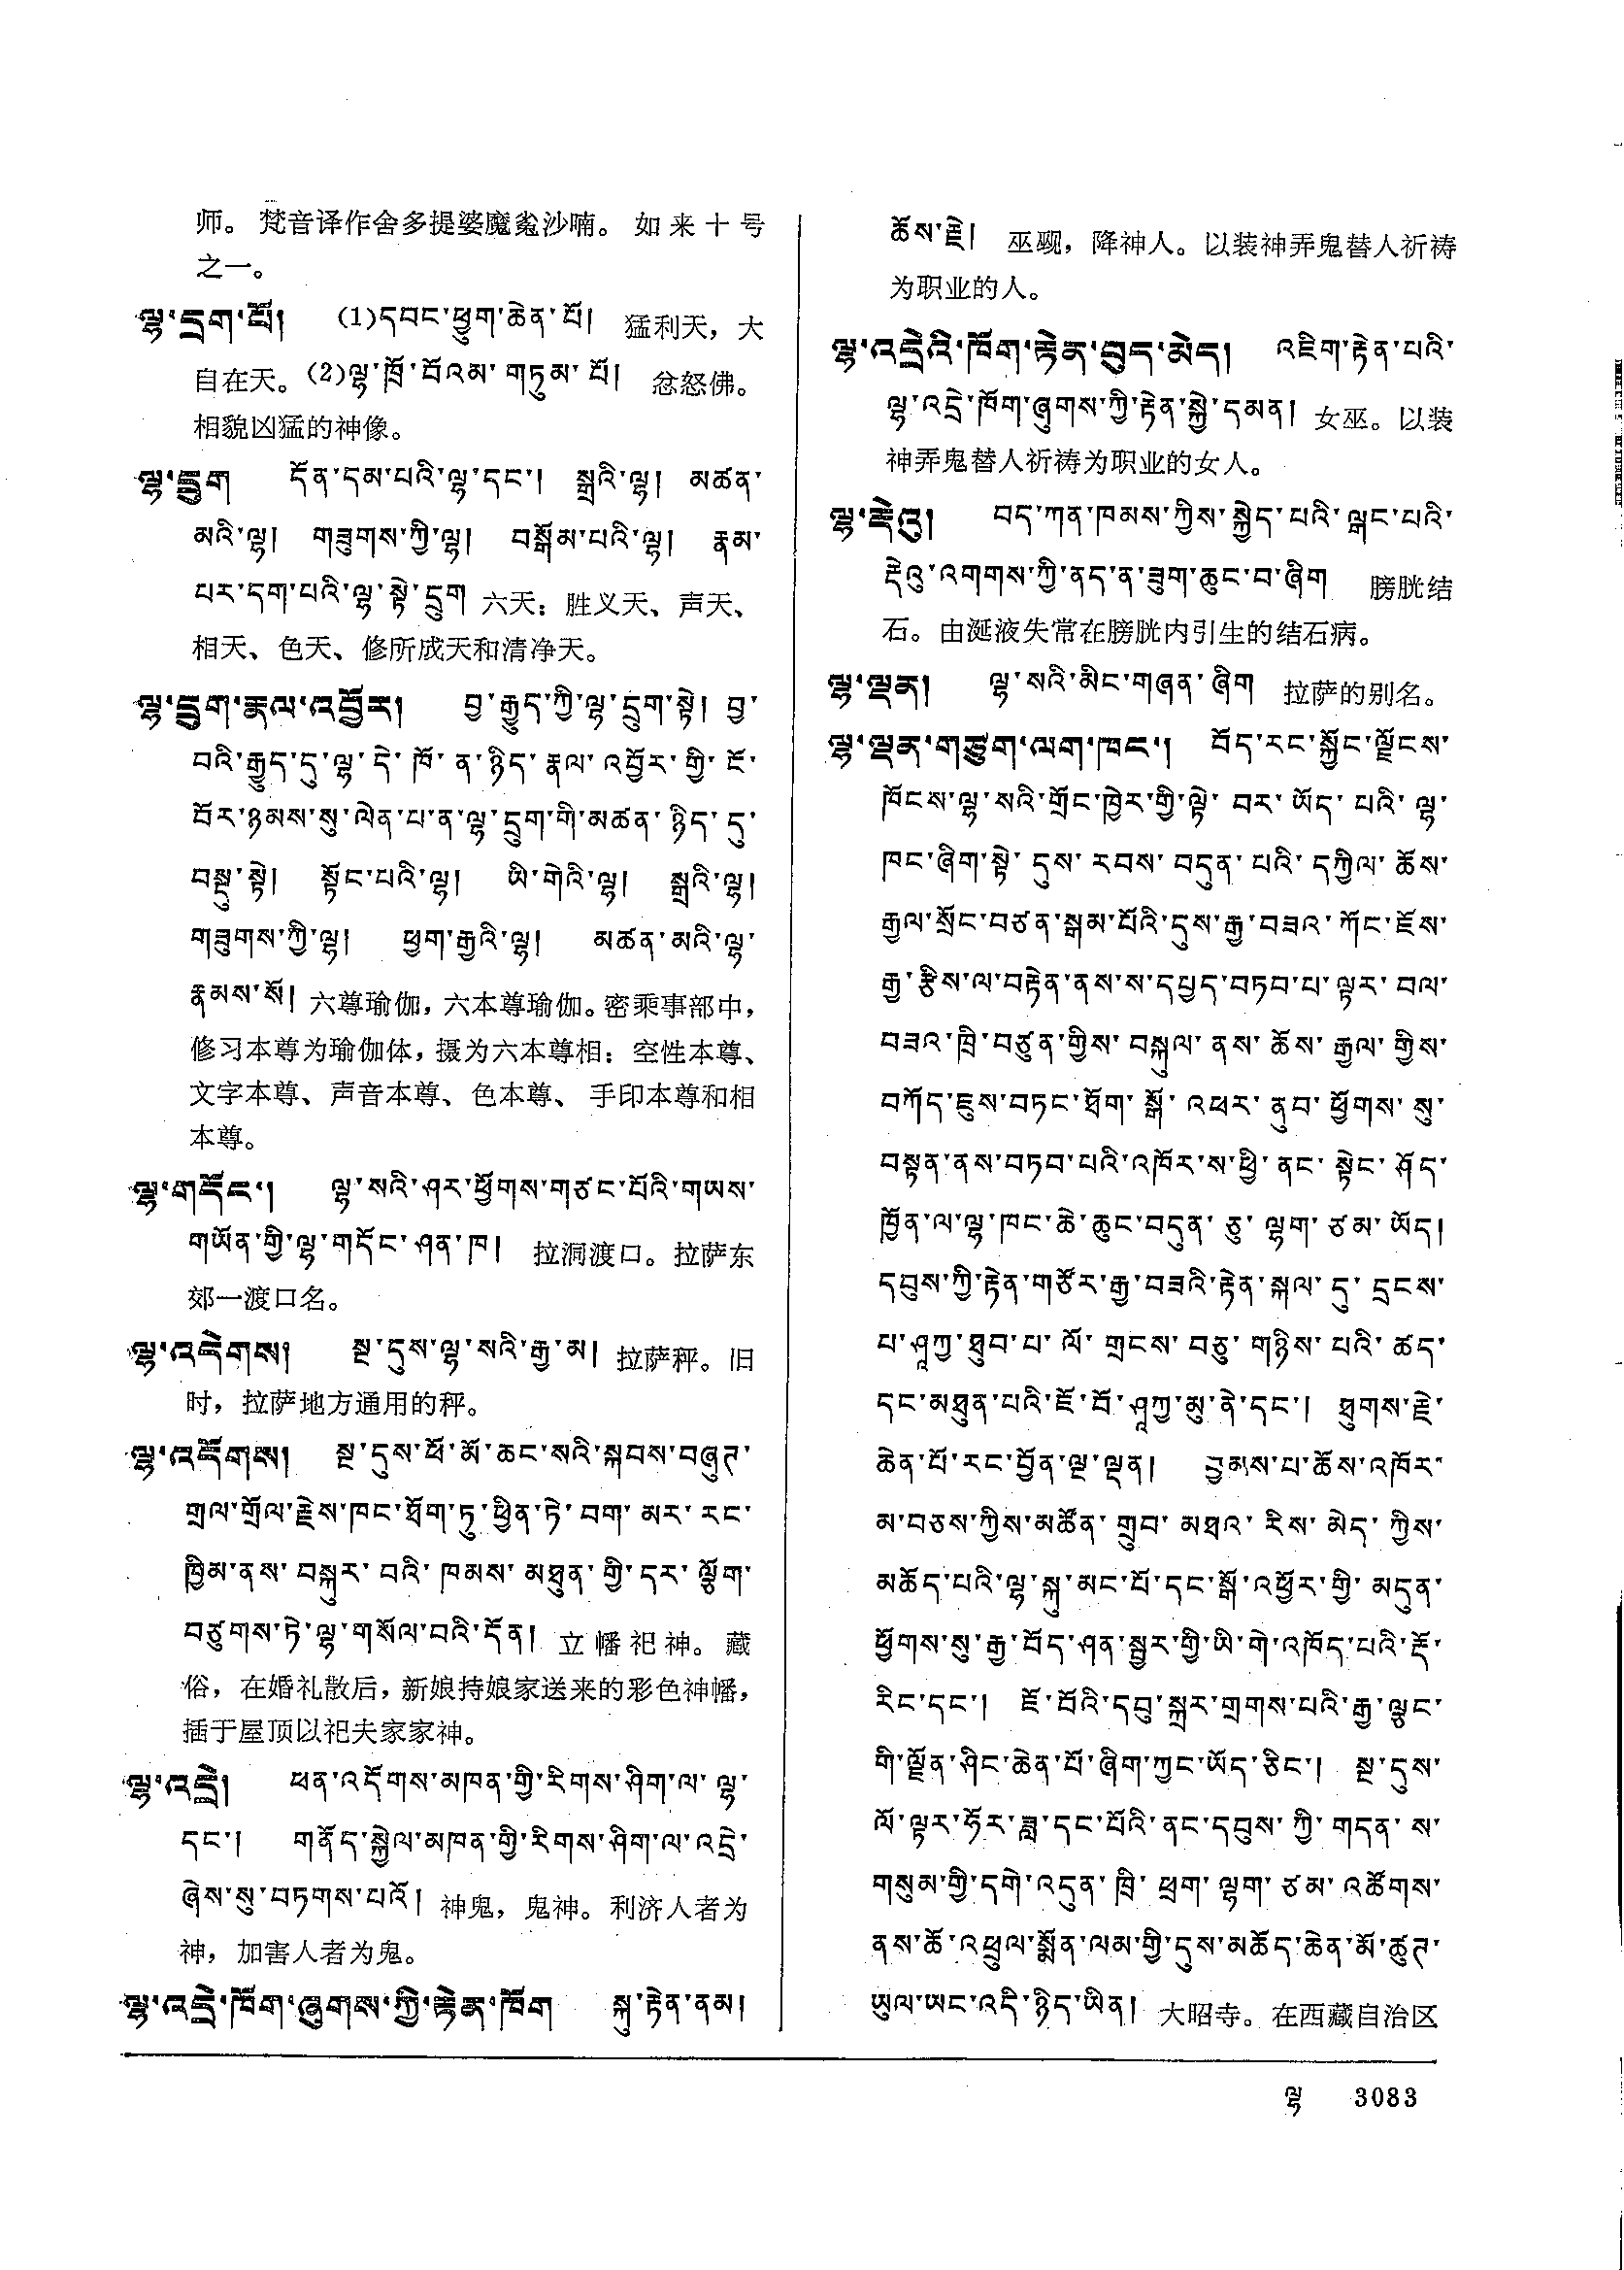 师。 梵音译作舍多提婆魔㝹沙喃。 如来十号
之一。
ལྷ་དྲག་པོ། (1)དབང་ཕྱུག་ཆེན་པོ། 猛利天，大
自在天。(2)ལྷ་ཁྲོ་བོའམ་གཏུམ་པོ། 忿怒佛。
相貌凶猛的神像。
ལྷ་དྲུག དོན་དམ་པའི་ལྷ་དང་། སྒྲའི་ལྷ། མཚན་
མའི་ལྷ། གཟུགས་ཀྱི་ལྷ། བསྒོམ་པའི་ལྷ། རྣམ་
པར་དག་པའི་ལྷ་སྟེ་དྲུག 六天：胜义天、声天、
相天、色天、修所成天和清净天。
ལྷ་དྲུག་རྣལ་འབྱོར། བྱ་རྒྱུད་ཀྱི་ལྷ་དྲུག་སྟེ། བྱ་
བའི་རྒྱུད་དུ་ལྷ་དེ་ཁོ་ན་ཉིད་རྣལ་འབྱོར་གྱི་ངོ་
བོར་ཉམས་སུ་ལེན་པ་ན་ལྷ་དྲུག་གི་མཚན་ཉིད་དུ་
བསྡུ་སྟེ། སྟོང་པའི་ལྷ། ཡི་གེའི་ལྷ། སྒྲའི་ལྷ།
གཟུགས་ཀྱི་ལྷ། ཕྱག་རྒྱའི་ལྷ། མཚན་མའི་ལྷ་
རྣམས་སོ། 六尊瑜伽，六本尊瑜伽。密乘事部中，
修习本尊为瑜伽体，摄为六本尊相：空性本尊、
文字本尊、声音本尊、色本尊、手印本尊和相
本尊。
ལྷ་གདོང་། ལྷ་སའི་ཤར་ཕྱོགས་གཙང་པོའི་གཡས་
གཡོན་གྱི་ལྷ་གདོང་ཤན་ཁ། 拉洞渡口。拉萨东
郊一渡口名。
ལྷ་འདེགས། སྔ་དུས་ལྷ་སའི་རྒྱ་མ། 拉萨秤。旧
时，拉萨地方通用的秤。
ལྷ་འདོགས། སྔ་དུས་ཕོ་མོ་ཆང་སའི་སྐབས་བཞུད་
གྲལ་གྲོལ་རྗེས་ཁང་ཐོག་ཏུ་ཕྱིན་ཏེ་བག་མར་རང་
ཁྱིམ་ནས་བསྐུར་བའི་ཁམས་མཐུན་གྱི་དར་ལྕོག་
བཙུགས་ཏེ་ལྷ་གསོལ་བའི་དོན། 立幡祀神。藏
俗，在婚礼散后，新娘持娘家送来的彩色神幡，
插于屋顶以祀夫家家神。
ལྷ་འདྲེ། ཕན་འདོགས་མཁན་གྱི་རིགས་ཤིག་ལ་ལྷ་
དང་། གནོད་སྐྱེལ་མཁན་གྱི་རིགས་ཤིག་ལ་འདྲེ་
ཞེས་སུ་བཏགས་པའོ། 神鬼，鬼神。利济人者为
神，加害人者为鬼。
ལྷ་འདྲེ་ཁོག་ཞུགས་ཀྱི་རྟེན་ཁོག སྐུ་རྟེན་ནམ།
ཆོས་རྗེ། 巫觋，降神人。以装神弄鬼替人祈祷
为职业的人。
ལྷ་འདྲེའི་ཁོག་རྟེན་བུད་མེད། འཇིག་རྟེན་པའི་
ལྷ་འདྲེ་ཁོག་ཞུགས་ཀྱི་རྟེན་སྐྱེ་དམན། 女巫。以装
神弄鬼替人祈祷为职业的女人。
ལྷ་རྡེའུ། བད་ཀན་ཁམས་ཀྱིས་སྐྱེད་པའི་ལྒང་པའི་
རྡེའུ་འགགས་ཀྱི་ནད་ན་ཟུག་ཆུང་བ་ཞིག 膀胱结
石。由涎液失常在膀胱内引生的结石病。
ལྷ་ལྡན། ལྷ་སའི་མིང་གཞན་ཞིག 拉萨的别名。
ལྷ་ལྡན་གཙུག་ལག་ཁང་། བོད་རང་སྐྱོང་ལྗོངས་
ཁོངས་ལྷ་སའི་གྲོང་ཁྱེར་གྱི་ལྟེ་བར་ཡོད་པའི་ལྷ་
ཁང་ཞིག་སྟེ་དུས་རབས་བདུན་པའི་དཀྱིལ་ཆོས་
རྒྱལ་སྲོང་བཙན་སྒམ་པོའི་དུས་རྒྱ་བཟའ་ཀོང་ཇོས་
རྒྱ་རྩིས་ལ་བརྟེན་ནས་ས་དཔྱད་བཏབ་པ་ལྟར་བལ་
བཟའ་ཁྲི་བཙུན་གྱིས་བསྐུལ་ནས་ཆོས་རྒྱལ་གྱིས་
བཀོད་ཇུས་བཏང་ཐོག་སྒོ་འཕར་ནུབ་ཕྱོགས་སུ་
བསྟན་ནས་བཏབ་པའི་འཁོར་ས་ཕྱི་ནང་སྟེང་ཤོད་
ཁྱོན་ལ་ལྷ་ཁང་ཆེ་ཆུང་བདུན་ཅུ་ལྷག་ཙམ་ཡོད།
དབུས་ཀྱི་རྟེན་གཙོར་རྒྱ་བཟའི་རྟེན་སྐལ་དུ་དྲངས་
པ་ཤཱཀྱ་ཐུབ་པ་ལོ་གྲངས་བཅུ་གཉིས་པའི་ཚད་
དང་མཐུན་པའི་ཇོ་བོ་ཤཱཀྱ་མུ་ནེ་དང་། ཐུགས་རྗེ་
ཆེན་པོ་རང་བྱོན་ལྔ་ལྡན། བྱམས་པ་ཆོས་འཁོར་
མ་བཅས་ཀྱིས་མཚོན་གྲུབ་མཐའ་རིས་མེད་ཀྱིས་
མཆོད་པའི་ལྷ་སྐུ་མང་པོ་དང་སྒོ་འཕྱོར་གྱི་མདུན་
ཕྱོགས་སུ་རྒྱ་བོད་ཤན་སྦྱར་གྱི་ཡི་གེ་འཁོད་པའི་རྡོ་
རིང་དང་། ཇོ་བོའི་དབུ་སྐྲར་གྲགས་པའི་རྒྱ་ལྕང་
གི་ལྗོན་ཤིང་ཆེན་པོ་ཞིག་ཀྱང་ཡོད་ཅིང་། སྔ་དུས་
ལོ་ལྟར་ཧོར་ཟླ་དང་པོའི་ནང་དབུས་ཀྱི་གདན་ས་
གསུམ་གྱི་དགེ་འདུན་ཁྲི་ཕྲག་ལྷག་ཙམ་འཚོགས་
ནས་ཆོ་འཕྲུལ་སྨོན་ལམ་གྱི་དུས་མཆོད་ཆེན་མོ་ཚུད་
ཡུལ་ཡང་འདི་ཉིད་ཡིན། 大昭寺。在西藏自治区
ལྷ 3083